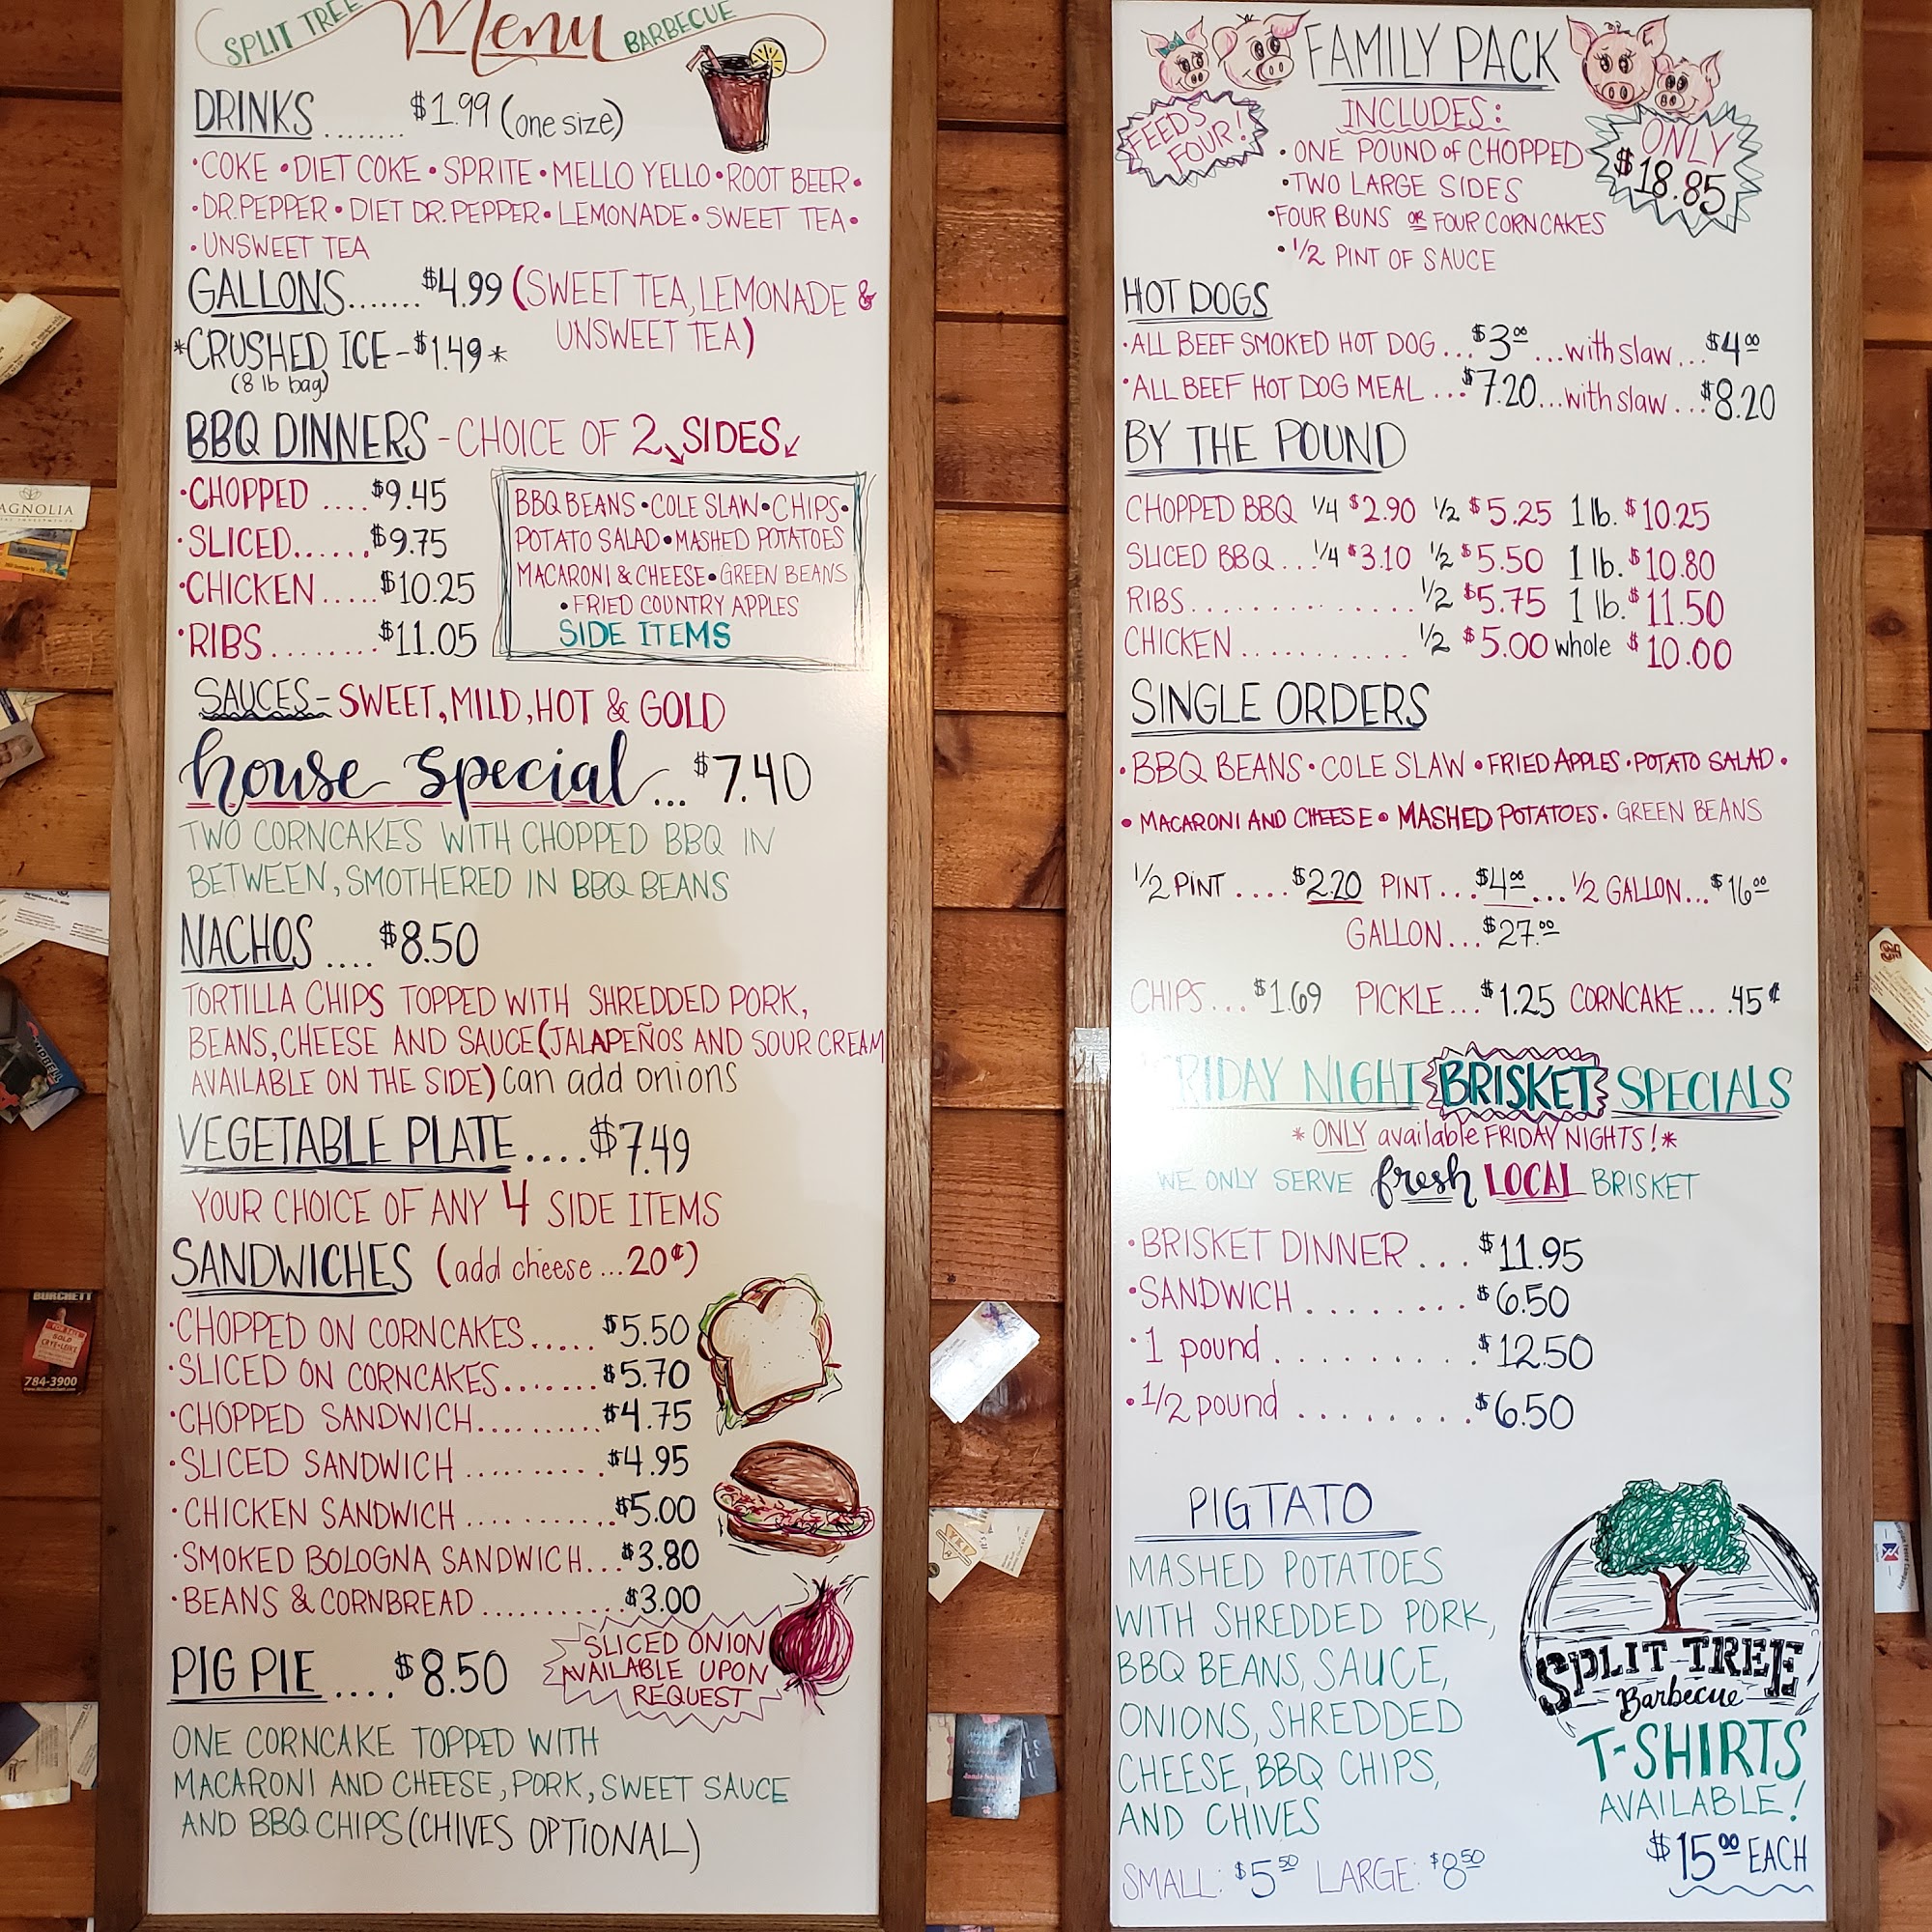 SPLIT TREE Menu BARBECUE
DRINKS ........ $1.99 (one size)
•COKE •DIET COKE •SPRITE •MELLO YELLO •ROOT BEER•
•DR. PEPPER • DIET DR. PEPPER • LEMONADE • SWEET TEA•
•UNSWEET TEA
GALLONS....... $4.99 (SWEET TEA, LEMONADE &
UNSWEET TEA)
*CRUSHED ICE - $1.49*
(8 lb bag)
BBQ DINNERS - CHOICE OF 2 SIDES
•CHOPPED .... $9.45
•SLICED...... $9.75
•CHICKEN ..... $10.25
•RIBS ........ $11.05
BBQ BEANS • COLE SLAW • CHIPS•
POTATO SALAD • MASHED POTATOES
MACARONI & CHEESE • GREEN BEANS
•FRIED COUNTRY APPLES
SIDE ITEMS
SAUCES - SWEET, MILD, HOT & GOLD
house special... $7.40
TWO CORNCAKES WITH CHOPPED BBQ IN
BETWEEN, SMOTHERED IN BBQ BEANS
NACHOS .... $8.50
TORTILLA CHIPS TOPPED WITH SHREDDED PORK,
BEANS, CHEESE AND SAUCE (JALAPEÑOS AND SOUR CREAM
AVAILABLE ON THE SIDE) can add onions
VEGETABLE PLATE .... $7.49
YOUR CHOICE OF ANY 4 SIDE ITEMS
SANDWICHES (add cheese ... 20¢)
•CHOPPED ON CORNCAKES ..... $5.50
•SLICED ON CORNCAKES ....... $5.70
•CHOPPED SANDWICH .......... $4.75
•SLICED SANDWICH .......... $4.95
•CHICKEN SANDWICH ........... $5.00
•SMOKED BOLOGNA SANDWICH... $3.80
•BEANS & CORNBREAD ........... $3.00
SLICED ONION
AVAILABLE UPON
REQUEST
PIG PIE .... $8.50
ONE CORNCAKE TOPPED WITH
MACARONI AND CHEESE, PORK, SWEET SAUCE
AND BBQ CHIPS (CHIVES OPTIONAL)
FAMILY PACK
FEEDS
FOUR!
INCLUDES:
• ONE POUND of CHOPPED
•TWO LARGE SIDES
•FOUR BUNS OR FOUR CORNCAKES
• 1/2 PINT OF SAUCE
ONLY
$18.85
HOT DOGS
•ALL BEEF SMOKED HOT DOG ... $3.00 ... with slaw ... $4.00
•ALL BEEF HOT DOG MEAL ... $7.20 ... with slaw ... $8.20
BY THE POUND
CHOPPED BBQ 1/4 $2.90 1/2 $5.25 1 lb. $10.25
SLICED BBQ ... 1/4 $3.10 1/2 $5.50 1 lb. $10.80
RIBS.............. 1/2 $5.75 1 lb. $11.50
CHICKEN ........... 1/2 $5.00 whole $10.00
SINGLE ORDERS
•BBQ BEANS • COLE SLAW • FRIED APPLES • POTATO SALAD •
• MACARONI AND CHEESE • MASHED POTATOES • GREEN BEANS
1/2 PINT .... $2.20 PINT ... $4.00 ... 1/2 GALLON ... $16.00
GALLON ... $27.00
CHIPS ... $1.69 PICKLE ... $1.25 CORNCAKE .... .45¢
RIDAY NIGHT BRISKET SPECIALS
* ONLY available FRIDAY NIGHTS! *
WE ONLY SERVE fresh LOCAL BRISKET
•BRISKET DINNER ... $11.95
•SANDWICH ........ $6.50
•1 pound ......... $12.50
•1/2 pound ........ $6.50
PIGTATO
MASHED POTATOES
WITH SHREDDED PORK,
BBQ BEANS, SAUCE,
ONIONS, SHREDDED
CHEESE, BBQ CHIPS,
AND CHIVES
SMALL: $5.50 LARGE: $8.50
SPLIT TREE
Barbecue
T-SHIRTS
AVAILABLE!
$15.00 EACH
AGNOLIA
BURCHETT
784-3900